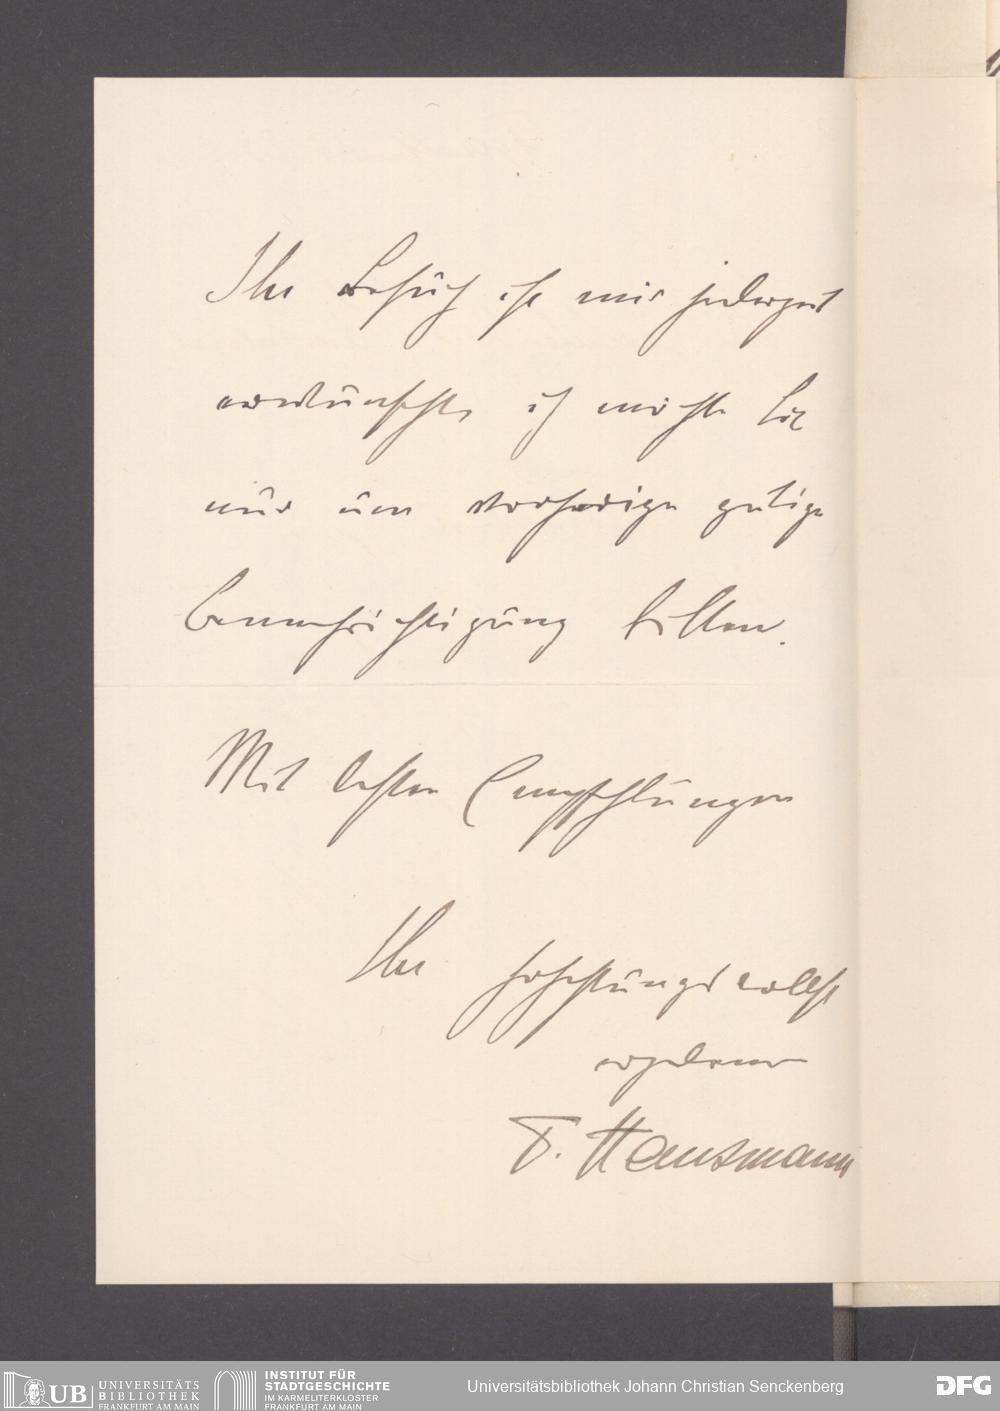 Ihr Besuch ist mir jederzeit
erwünscht, ich möchte Sie
nur um vorherige gütige
Benachrichtigung bitten.
Mit besten Empfehlungen
Ihr hochachtungsvollst
ergebener
F. Hausmann
UB UNIVERSITÄTS
BIBLIOTHEK
FRANKFURT AM MAIN
INSTITUT FÜR
STADTGESCHICHTE
IM KARMELITERKLOSTER
FRANKFURT AM MAIN
Universitätsbibliothek Johann Christian Senckenberg
DFG